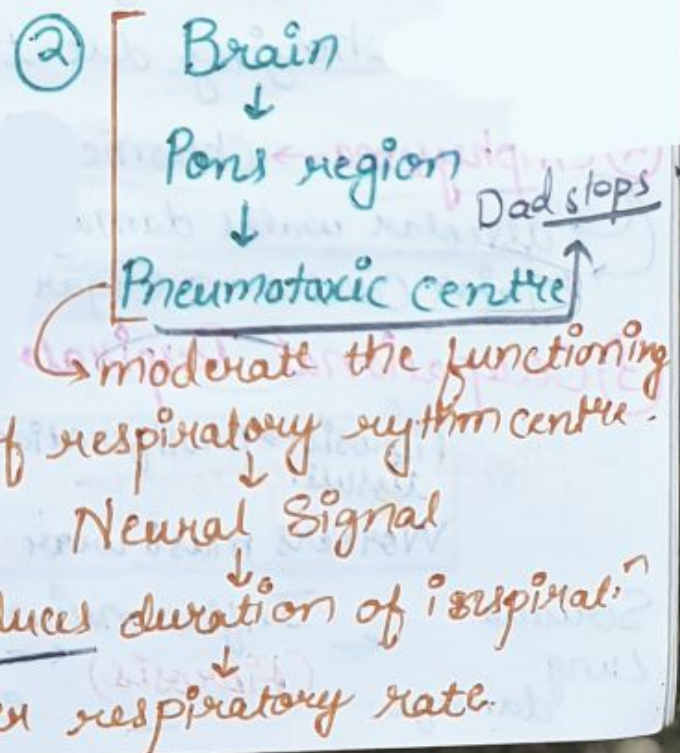 ②
Brain
↓
Pons region
↓
Dad stops
Pneumotaxic centre
→ moderate the functioning
f respiratory rythm centre.
↓
Neural Signal
↓
duces duration of inspiratiⁿ
↓
respiratory rate.